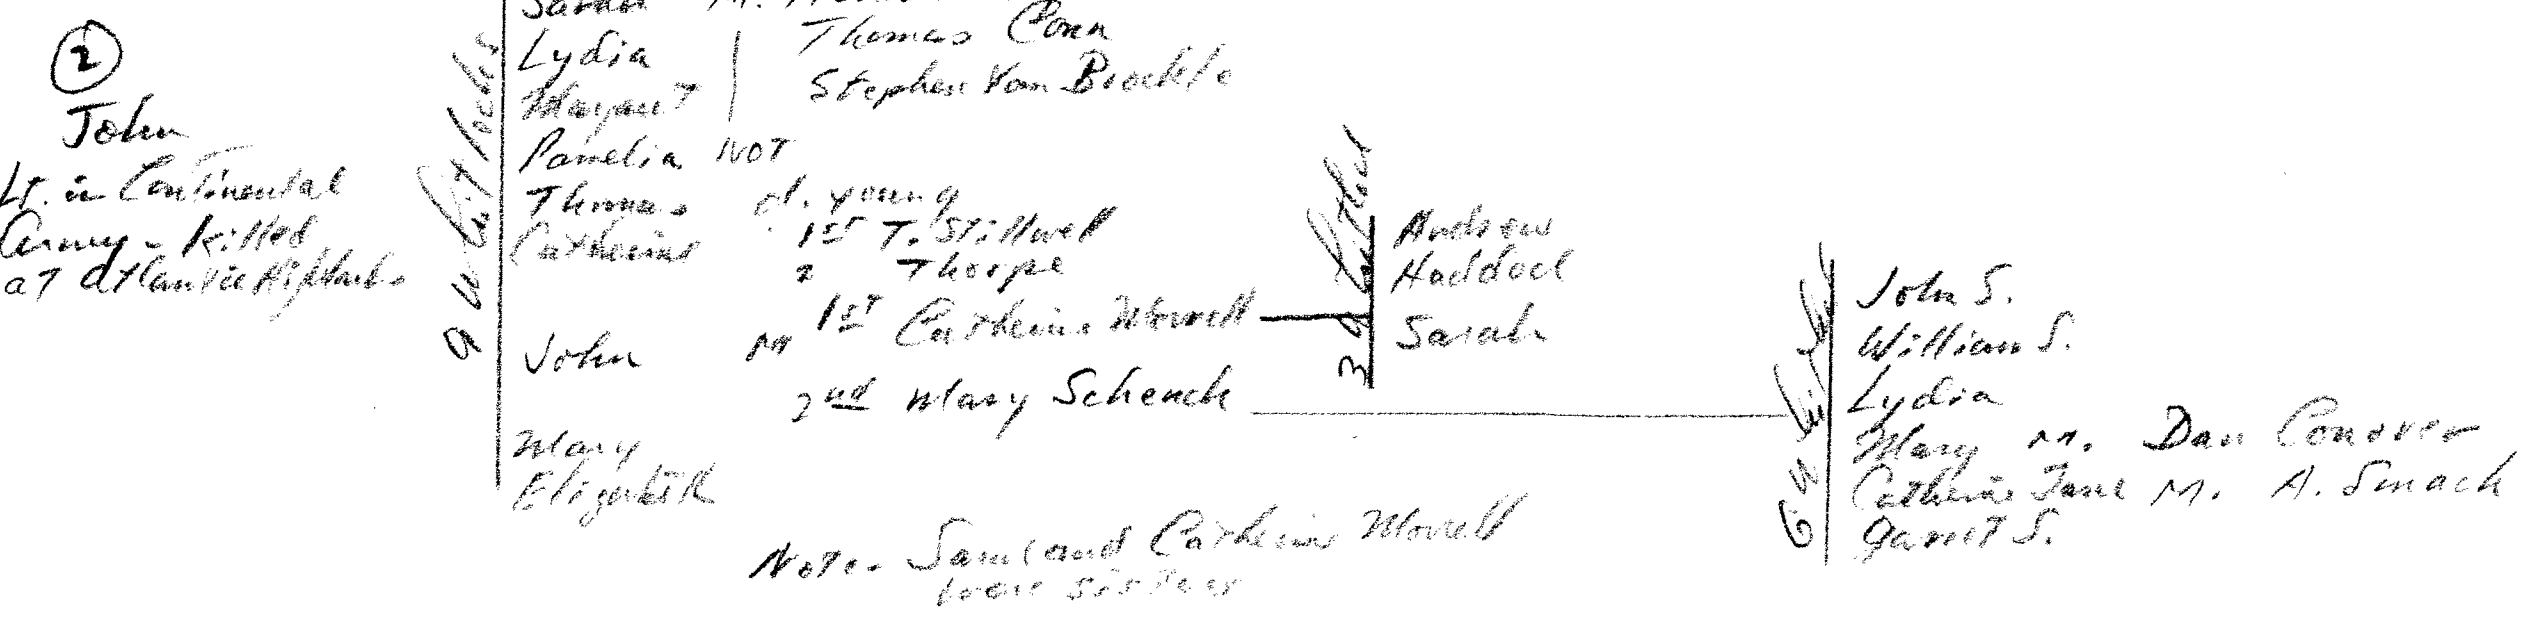 2
John
Lt. in Continental
Army - Killed
at Atlantic Highlands
Sarah M.
Lydia Thomas Conn
Margaret Stephen Van Brockle
Pamelia NOT
Thomas d. young
Catherine 1st T. Stillwell
2 Thorpe
John M 1st Catherine Morrell
2nd Mary Schenck
Mary
Elizabeth
9
3
Andrew
Haddock
Sarah
6
John S.
William S.
Lydia
Mary M. Dan Conover
Catherine Jane M. A. Smack
Garret S.
Note. and Catherine Morrell
were sisters